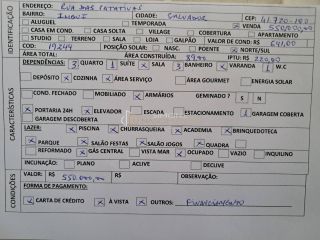 ENDEREÇO: RUA DAS CATATIVAS
BAIRRO: IMBUÍ CIDADE: SALVADOR CEP: 41.720-100
ALUGUEL TEMPORADA X VENDA 550.000,00
CASA CASA SOLTA VILLAGE COBERTURA APARTAMENTO
STUDIO TERRENO SALA LOJA GALPÃO VALOR DE COND R$ 641,00
COD: 19249 POSIÇÃO SOLAR: NASC. POENTE X NORTE/SUL
ÁREA TOTAL: ÁREA CONSTRUÍDA: 89,00 IPTU R$: 220,00
DEPENDÊNCIAS: 3 QUARTO 1 SUÍTE X SALA 3 BANHEIRO X VARANDA 1 W.C
DEPÓSITO X COZINHA X ÁREA SERVIÇO ÁREA GOURMET ENERGIA SOLAR
COND. FECHADO MOBILIADO X ARMÁRIOS GEMINADO? S N
X PORTARIA 24H X ELEVADOR ESCADA ESTACIONAMENTO 1 GARAGEM COBERTA
GARAGEM DESCOBERTA
LAZER: X PISCINA X CHURRASQUEIRA X ACADEMIA X BRINQUEDOTECA
X PARQUE X SALÃO FESTAS X SALÃO JOGOS QUADRA
REFORMADO X GÁS CENTRAL VISTA MAR X OCUPADO VAZIO INQUILINO
INCLINAÇÃO: PLANO ACLIVE DECLIVE
VALOR: R$ 550.000,00 R$ OBSERVAÇÃO:
FORMA DE PAGAMENTO:
X CARTA DE CRÉDITO X À VISTA X OUTROS: FINANCIAMENTO
IDENTIFICAÇÃO
CARACTERÍSTICAS
CONDIÇÕES